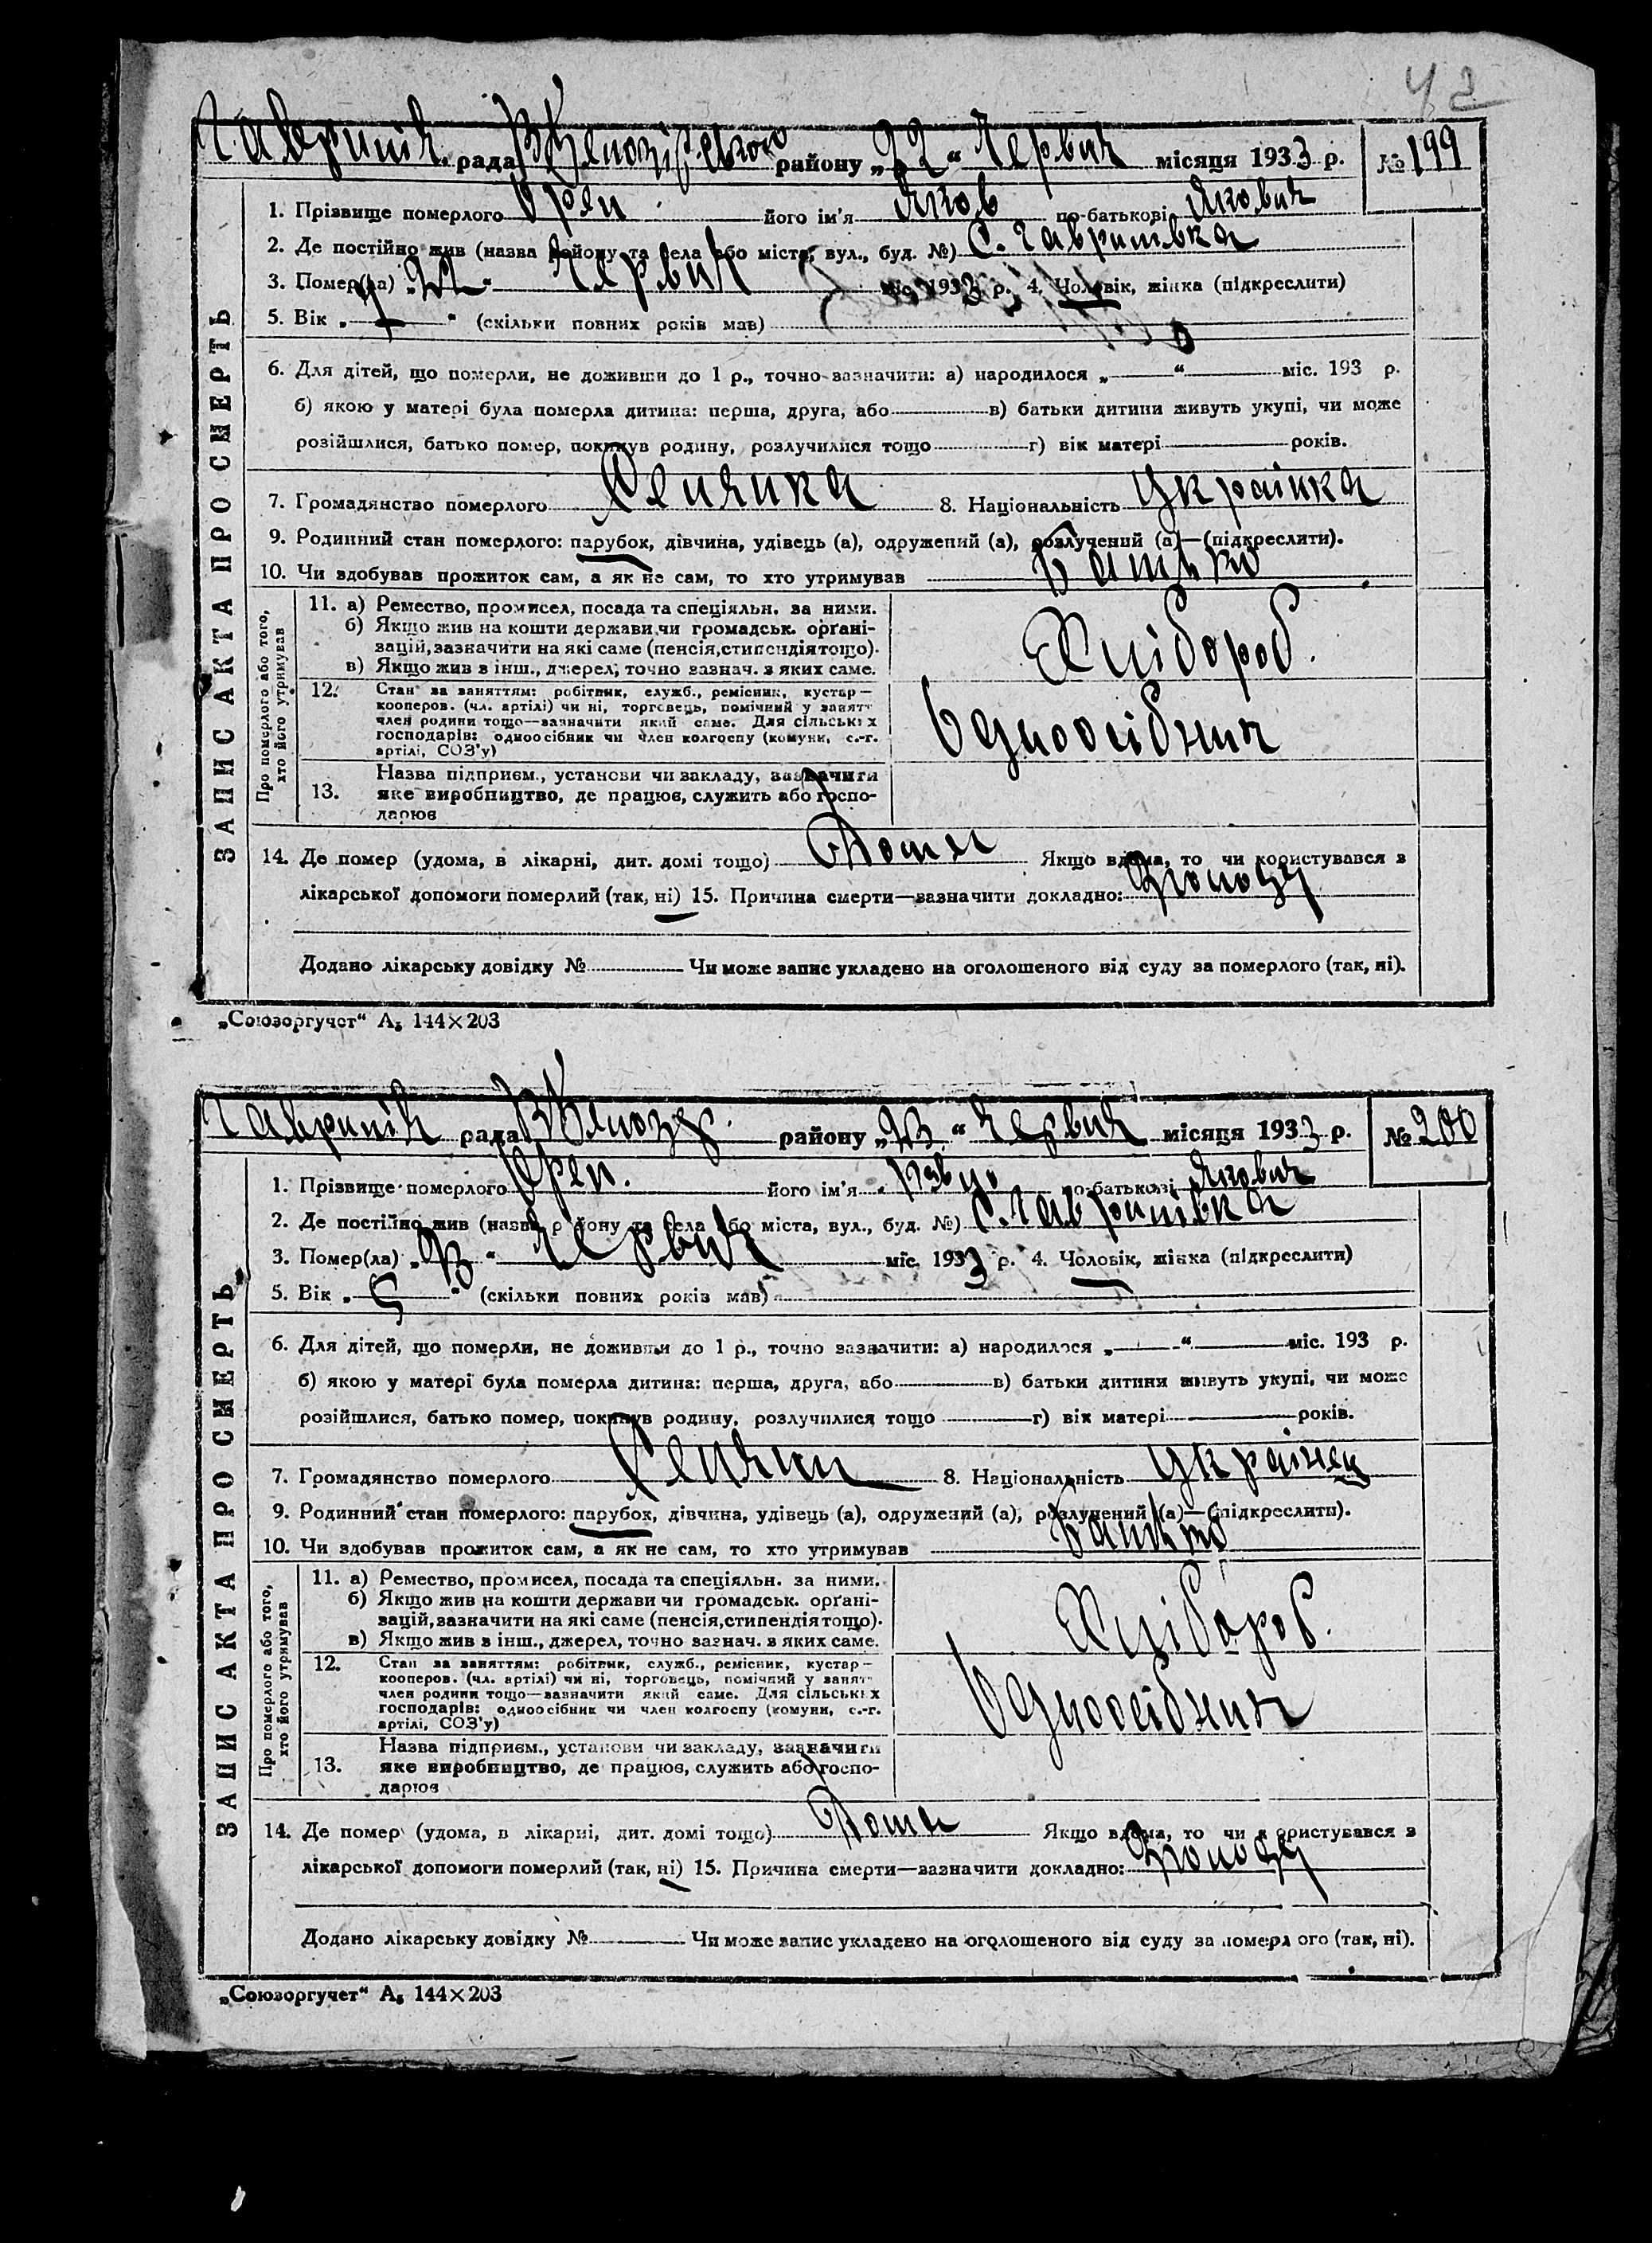 42
Гаврилів. рада В Білозірського району „22“ Червня місяця 1933 р. № 199
ЗАПИС АКТА ПРО СМЕРТЬ
1. Прізвище померлого Орел його ім'я Яков по-батькові Якович
2. Де постійно жив (назва району та села або міста, вул., буд. №) С. Гаврилівка
3. Помер(ла) „22“ Червня міс. 1933 р. 4. Чоловік, жінка (підкреслити)
5. Вік „7“ (скільки повних років мав)
6. Для дітей, що померли, не доживши до 1 р., точно зазначити: а) народилося „ “ міс. 193 р.
б) якою у матері була померла дитина: перша, друга, або в) батьки дитини живуть укупі, чи може
розійшлися, батько помер, покинув родину, розлучилися тощо г) вік матері років.
7. Громадянство померлого Селянка 8. Національність Українка
9. Родинний стан померлого: парубок, дівчина, удівець (а), одружений (а), розлучений (а)—(підкреслити).
10. Чи здобував прожиток сам, а як не сам, то хто утримував Батько
Про померлого або того, хто його утримував
11. а) Ремество, промисел, посада та спеціяльн. за ними.
б) Якщо жив на кошти держави чи громадськ. орґані-
зацій, зазначити на які саме (пенсія, стипендія тощо).
в) Якщо жив з інш., джерел, точно зазнач. з яких саме.
Хлібороб.
12. Стан за заняттям: робітник, служб., ремісник, кустар—
кооперов. (чл. артілі) чи ні, торговець, помічний у занятт
член родини тощо—зазначити який саме. Для сільських
господарів: одноосібник чи член колгоспу (комуни, с.-г.
артілі, СОЗ'у)
Одноосібник
13. Назва підприєм., установи чи закладу, зазначити
яке виробництво, де працює, служить або госпо-
дарює
14. Де помер (удома, в лікарні, дит. домі тощо) Дома Якщо вдома, то чи користувався з
лікарської допомоги померлий (так, ні) 15. Причина смерти—зазначити докладно:
Додано лікарську довідку № Чи може запис укладено на оголошеного від суду за померлого (так, ні).
„Союзоргучет“ А₅ 144×203
Гаврилів рада В Білозір. району „23“ Червня місяця 1933 р. № 200
ЗАПИС АКТА ПРО СМЕРТЬ
1. Прізвище померлого Орел. його ім'я Павло по-батькові Якович
2. Де постійно жив (назва району та села або міста, вул., буд. №) С. Гаврилівка
3. Помер(ла) „23“ Червня міс. 1933 р. 4. Чоловік, жінка (підкреслити)
5. Вік „5“ (скільки повних років мав)
6. Для дітей, що померли, не доживши до 1 р., точно зазначити: а) народилося „ “ міс. 193 р.
б) якою у матері була померла дитина: перша, друга, або в) батьки дитини живуть укупі, чи може
розійшлися, батько помер, покинув родину, розлучилися тощо г) вік матері років.
7. Громадянство померлого Селянин 8. Національність Українец
9. Родинний стан померлого: парубок, дівчина, удівець (а), одружений (а), розлучений (а)—(підкреслити).
10. Чи здобував прожиток сам, а як не сам, то хто утримував Батько
Про померлого або того, хто його утримував
11. а) Ремество, промисел, посада та спеціяльн. за ними.
б) Якщо жив на кошти держави чи громадськ. орґані-
зацій, зазначити на які саме (пенсія, стипендія тощо).
в) Якщо жив з інш., джерел, точно зазнач. з яких саме.
Хлібороб.
12. Стан за заняттям: робітник, служб., ремісник, кустар—
кооперов. (чл. артілі) чи ні, торговець, помічний у занятт
член родини тощо—зазначити який саме. Для сільських
господарів: одноосібник чи член колгоспу (комуни, с.-г.
артілі, СОЗ'у)
Одноосібник
13. Назва підприєм., установи чи закладу, зазначити
яке виробництво, де працює, служить або госпо-
дарює
14. Де помер (удома, в лікарні, дит. домі тощо) Дома Якщо вдома, то чи користувався з
лікарської допомоги померлий (так, ні) 15. Причина смерти—зазначити докладно:
Додано лікарську довідку № Чи може запис укладено на оголошеного від суду за померлого (так, ні).
„Союзоргучет“ А₅ 144×203